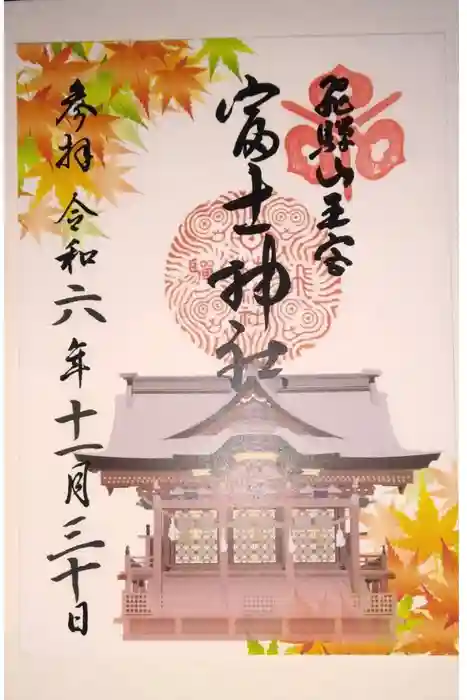 飛驒山王宮
富士神社
参拝 令和六年十一月三十日